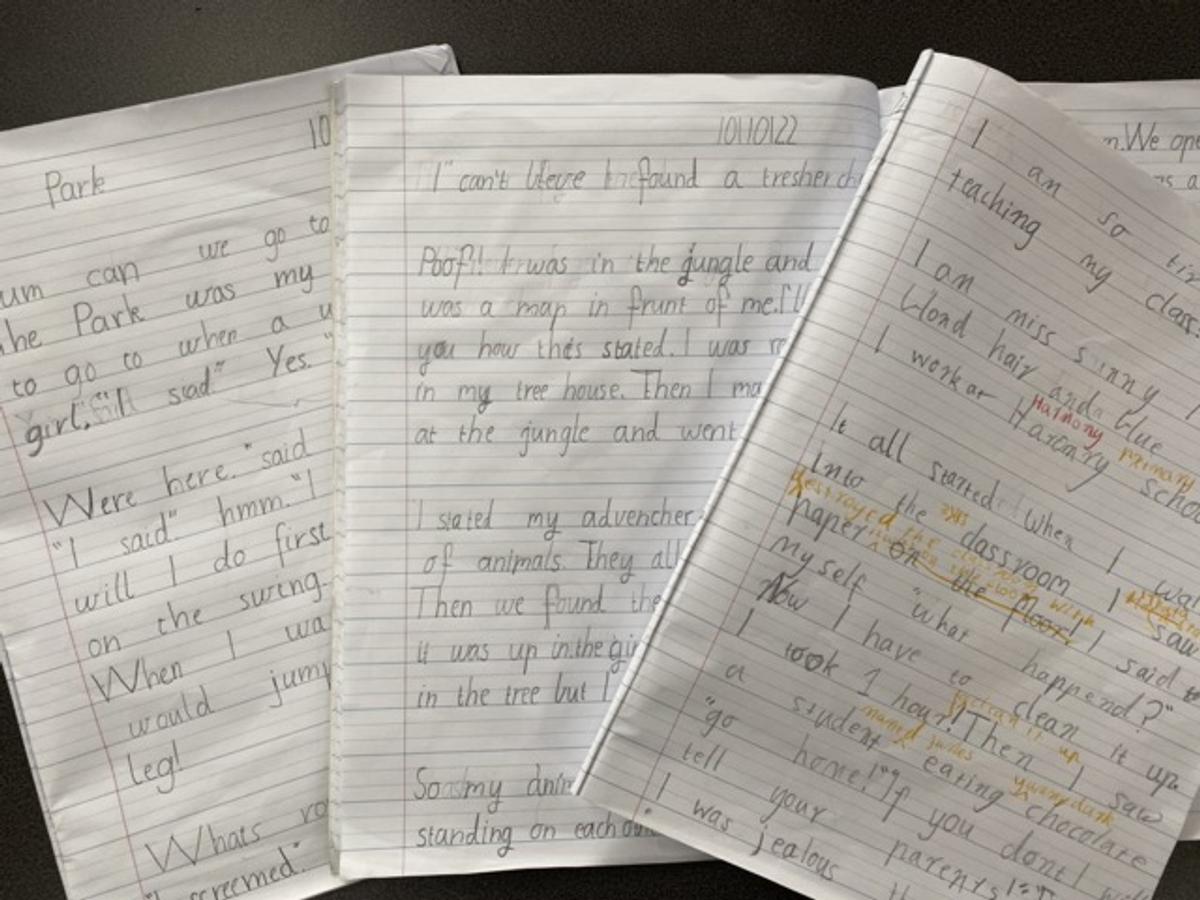 10
Park
um can we go to
he Park was my
to go to when a
girl. I siad." Yes."
Were here. "said
"I said" hmm. "I
will I do first
on the swing.
When I wa
would jump
leg!
Whats ro
screemed."
10/10/22
I" can't found a tresher ch
Poof! was in the jungle and
was a map in frunt of me.
you how this stated. I was re
in my tree house. Then I ma
at the jungle and went
I stated my advencher
of animals. They all
Then we found the
it was up in the gi
in the tree but I
So my anim
standing on each ou
I am so tir
teaching my class.
I am miss sunny
blond hair and blue
Harmony primary
I work at Harcmry schoo
It all started when I wa
into the classroom I saw
destroyed the classroom with
paper on the floor! I said to
myself "what happend?"
Now I have to clean it up.
I took 1 hour! Then I saw
a student eating chocolate
"go home!" If you dont I will
tell your parents!"
I was jealous
n. We ope
s a